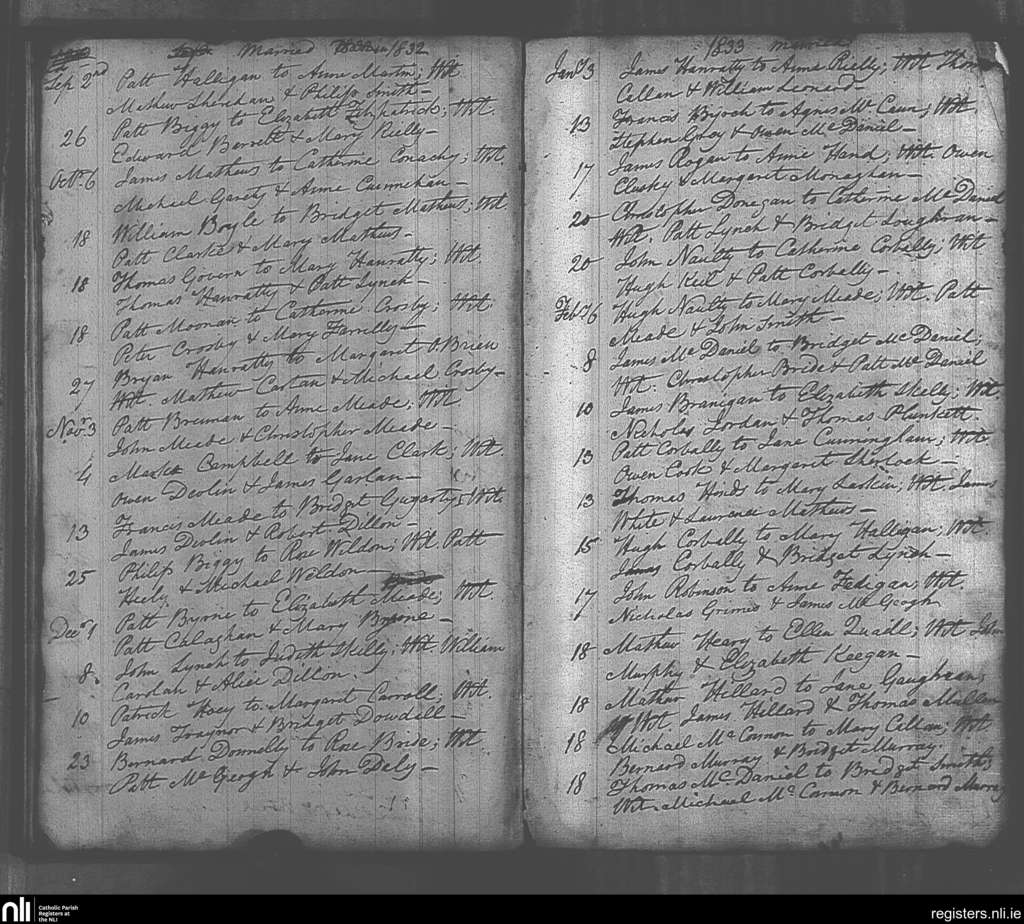 Married 1832
Sep 2nd Patt Halligan to Anne Martin; Wit.
Mathew Sherehan & Philip Smith—
26 Patt Biggy to Elizabeth Fitzpatrick; Wit.
Edward Berrett & Mary Reilly—
Octr. 6 James Mathews to Catherine Conachy; Wit.
Michael Garety & Anne Cunnehan—
18 William Boyle to Bridget Mathews; Wit
Patt Clarke & Mary Mathews—
18 Thomas Govern to Mary Hanratty; Wit.
Thomas Hanratty & Patt Lynch—
18 Patt Moonan to Catherine Crosby; Wit.
Peter Crosby & Mary Farrelly—
27 Bryan Hanratty to Margaret O.Brien
Wit. Mathew Cartan & Michael Crosby—
Novr. 3 Patt Brennan to Anne Meade; Wit.
John Meade & Christopher Meade—
4 Campbell to Jane Clark; Wit.
Owen Devlin & James Garlan—
13 Francis Meade to Bridget Gugarty; Wit.
James Devlin & Robert Dillon—
25 Philip Biggy to Rose Weldon; Wit. Patt
Heely & Michael Weldon—
Decr. 1 Patt Byrne to Elizabeth Meade; Wit.
Patt Calaghan & Mary Byrone—
8 John Lynch to Judith Skelly; Wit William
Carolan & Alice Dillon.
10 Patrick Hoey to Margaret Carroll; Wit.
James Traynor & Bridget Dowdall—
23 Bernard Donnelly to Rose Bride; Wit.
Patt Mc Geogh & John Daly—
1833 Married
Jany 3 James Hanratty to Anne Reilly; Wit Thomas
Callan & William Leonard—
13 Francis Byroch to Agnes Mc Caun; Wit.
Stephen Gray & Owen Mc Daniel—
17 James Rogan to Anne Hand; Wit. Owen
Clusky & Margaret Monaghan—
20 Christopher Donegan to Catherine Mc Daniel
Wit. Patt Lynch & Bridget Loughran—
20 John Naulty to Catherine Corbally; Wit
Hugh Keil & Patt Corbally—
Feby 6 Hugh Naulty to Mary Meade; Wit. Patt
Meade & John Smith—
8 James Mc Daniel to Bridget Mc Daniel;
Wit. Christopher Bride & Patt Mc Daniel
10 James Branigan to Elizabeth Skelly; Wit.
Nicholas Jordan & Thomas Plunkett.
13 Patt Corbally to Jane Cunningham; Wit.
Owen Cook & Margaret Sherlock—
13 Thomas Hinds to Mary Larkin; Wit. James
White & Laurence Mathews—
15 Hugh Corbally to Mary Halligan; Wit.
James Corbally & Bridget Lynch—
17 John Robinson to Anne Fedigan; Wit.
Nicholas Grimes & James Mc Geogh
18 Mathew Heary to Ellen Quaill; Wit John
Murphy & Elizabeth Keegan—
18 Mathew Hellard to Jane Gaughran;
Wit James Hellard & Thomas Mullen
18 Michael Mc Cannon to Mary Callan; Wit.
Bernard Murray & Bridget Murray.
18 Thomas Mc Daniel to Bridget Smith;
Wit. Michael Mc Cannon & Bernard Murray
nli Catholic Parish
Registers at
the NLI
registers.nli.ie